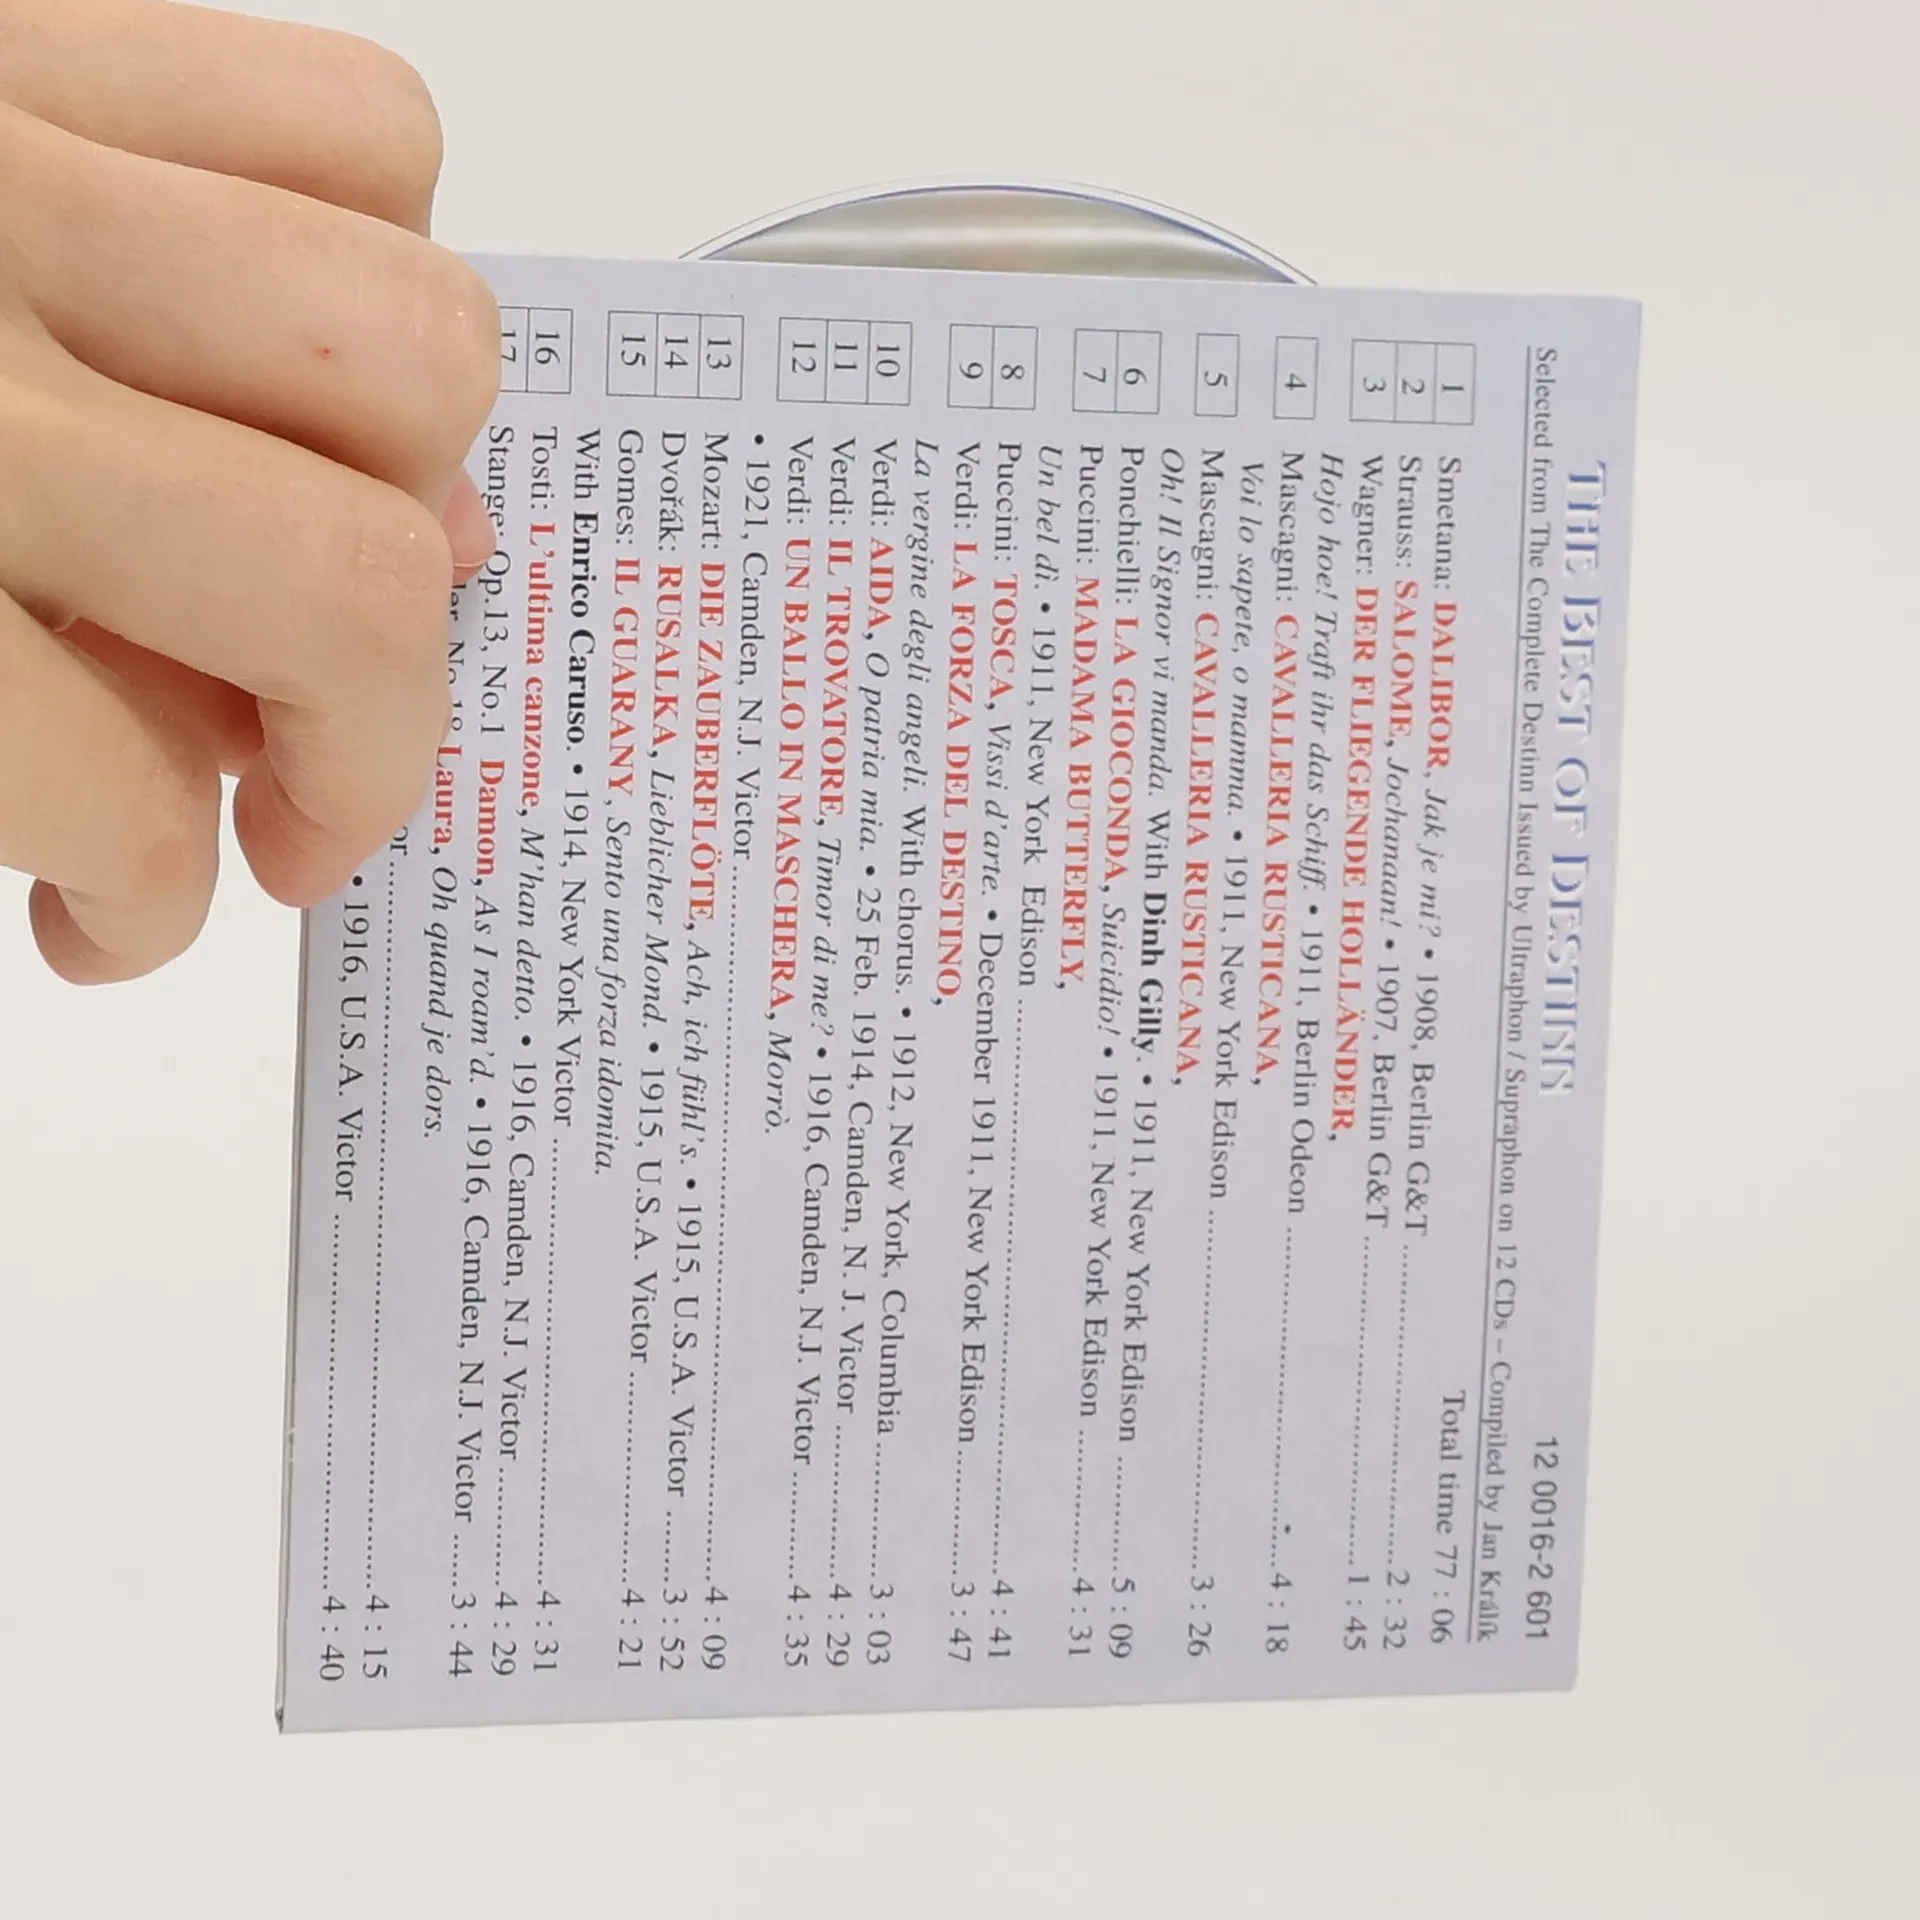 THE BEST OF DESTINN 12 0016-2 601
Selected from The Complete Destinn Issued by Ultraphon / Supraphon on 12 CDs – Compiled by Jan Králík
Total time 77 : 06
1 Smetana: DALIBOR, Jak je mi? • 1908, Berlin G&T ........ 2 : 32
2 Strauss: SALOME, Jochanaan! • 1907, Berlin G&T ........ 1 : 45
3 Wagner: DER FLIEGENDE HOLLÄNDER,
Hojo hoe! Traft ihr das Schiff. • 1911, Berlin Odeon ........ 4 : 18
4 Mascagni: CAVALLERIA RUSTICANA,
Voi lo sapete, o mamma. • 1911, New York Edison ........ 3 : 26
5 Mascagni: CAVALLERIA RUSTICANA,
Oh! Il Signor vi manda. With Dinh Gilly. • 1911, New York Edison ........ 5 : 09
6 Ponchielli: LA GIOCONDA, Suicidio! • 1911, New York Edison ........ 4 : 31
7 Puccini: MADAMA BUTTERFLY,
Un bel dì. • 1911, New York Edison ........ 4 : 41
8 Puccini: TOSCA, Vissi d'arte. • December 1911, New York Edison ........ 3 : 47
9 Verdi: LA FORZA DEL DESTINO,
La vergine degli angeli. With chorus. • 1912, New York, Columbia ........ 3 : 03
10 Verdi: AIDA, O patria mia. • 25 Feb. 1914, Camden, N. J. Victor ........ 4 : 29
11 Verdi: IL TROVATORE, Timor di me? • 1916, Camden, N.J. Victor ........ 4 : 35
12 Verdi: UN BALLO IN MASCHERA, Morrò.
• 1921, Camden, N.J. Victor ........ 4 : 09
13 Mozart: DIE ZAUBERFLÖTE, Ach, ich fühl's. • 1915, U.S.A. Victor ...... 3 : 52
14 Dvořák: RUSALKA, Lieblicher Mond. • 1915, U.S.A. Victor ........ 4 : 21
15 Gomes: IL GUARANY, Sento una forza idomita.
With Enrico Caruso. • 1914, New York Victor ........ 4 : 31
16 Tosti: L'ultima canzone, M'han detto. • 1916, Camden, N.J. Victor ........ 4 : 29
17 Stange: Op.13, No.1 Damon, As I roam'd. • 1916, Camden, N.J. Victor ...... 3 : 44
No.18 Laura, Oh quand je dors.
........ 4 : 15
• 1916, U.S.A. Victor ........ 4 : 40